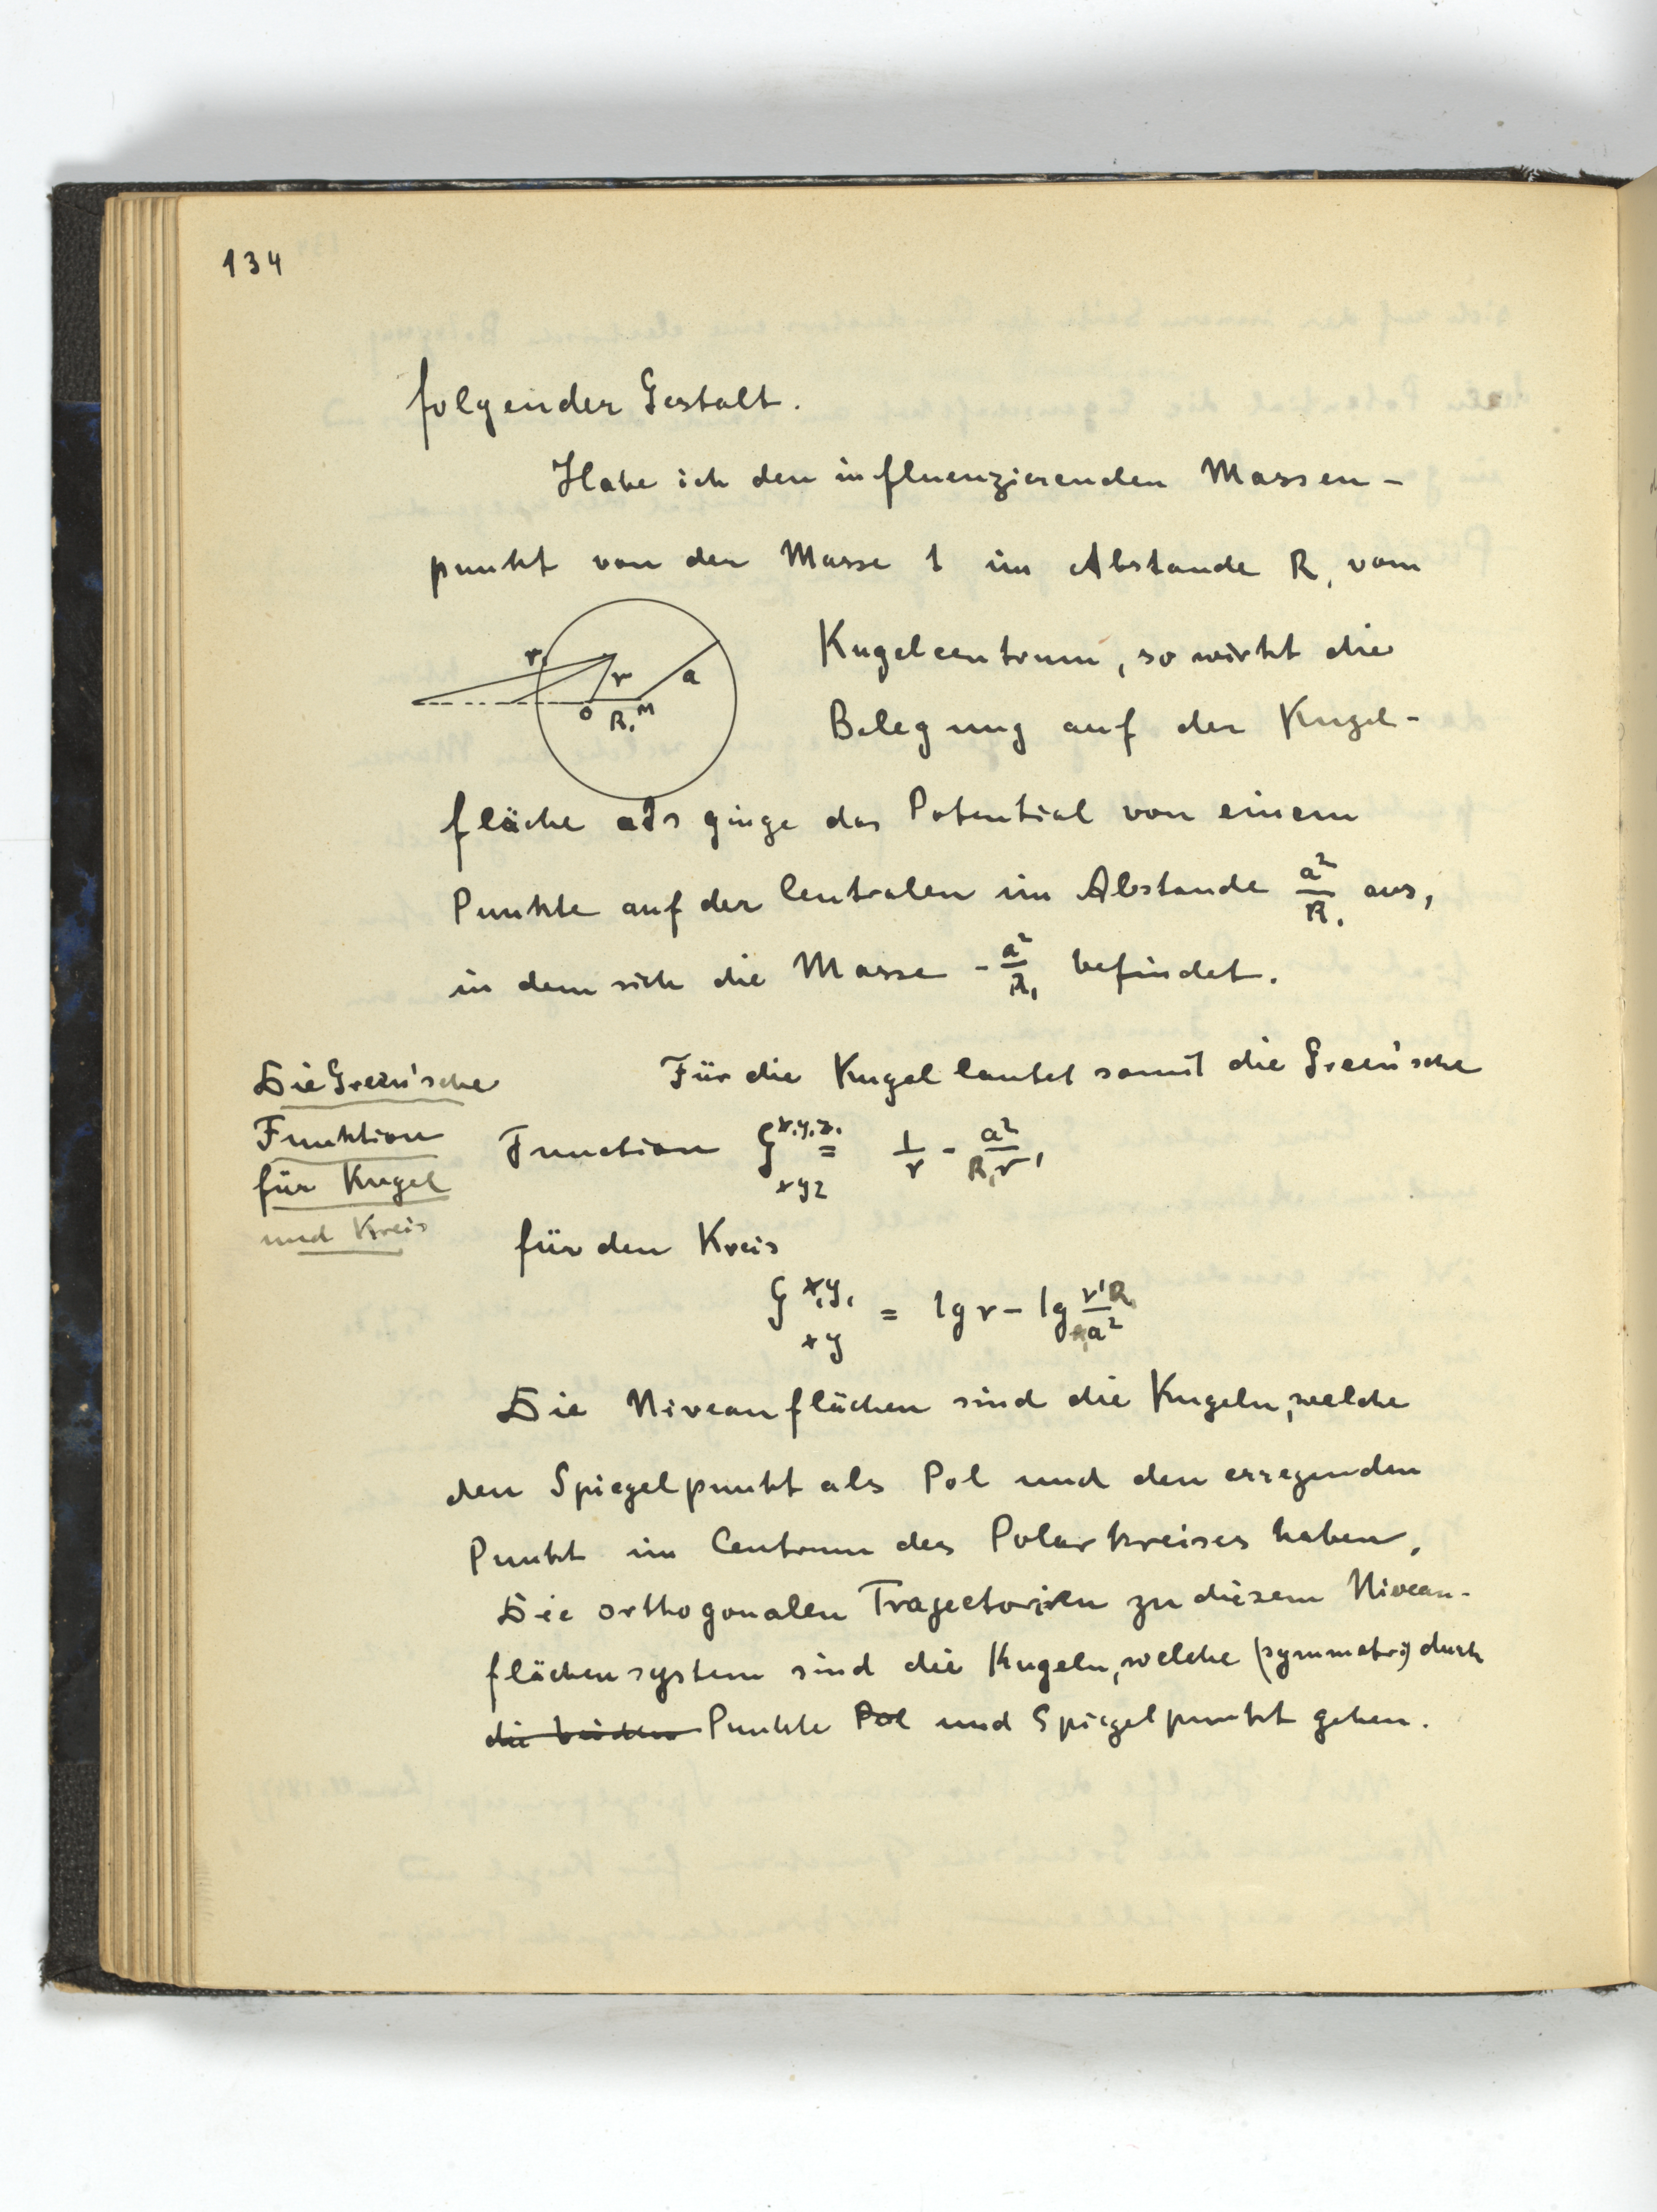 134
folgender Gestalt.
Habe ich den influenzierenden Massen-
punkt von der Masse 1 im Abstande R₁ vom
r₁ r a
O R₁ M
Kugelcentrum, so wirkt die
Belegung auf der Kugel-
fläche als ginge das Potential von einem
Punkte auf der Centralen im Abstande a²/R₁ aus,
in dem sich die Masse - a²/R₁ befindet.
Die Green'sche
Funktion
für Kugel
und Kreis
Für die Kugel lautet somit die Green'sche
Function G^{x₁y₁z₁}_{xyz} = 1/r - a²/R₁r'
für den Kreis
G^{x₁y₁}_{xy} = lg r - lg r'R₁/a²
Die Niveauflächen sind die Kugeln, welche
den Spiegelpunkt als Pol und den erregenden
Punkt im Centrum des Polarkreises haben.
Die orthogonalen Trajectorien zu diesem Niveau-
flächensystem sind die Kugeln, welche (symmetr.) durch
die beiden Punkte Pol und Spiegelpunkt gehen.